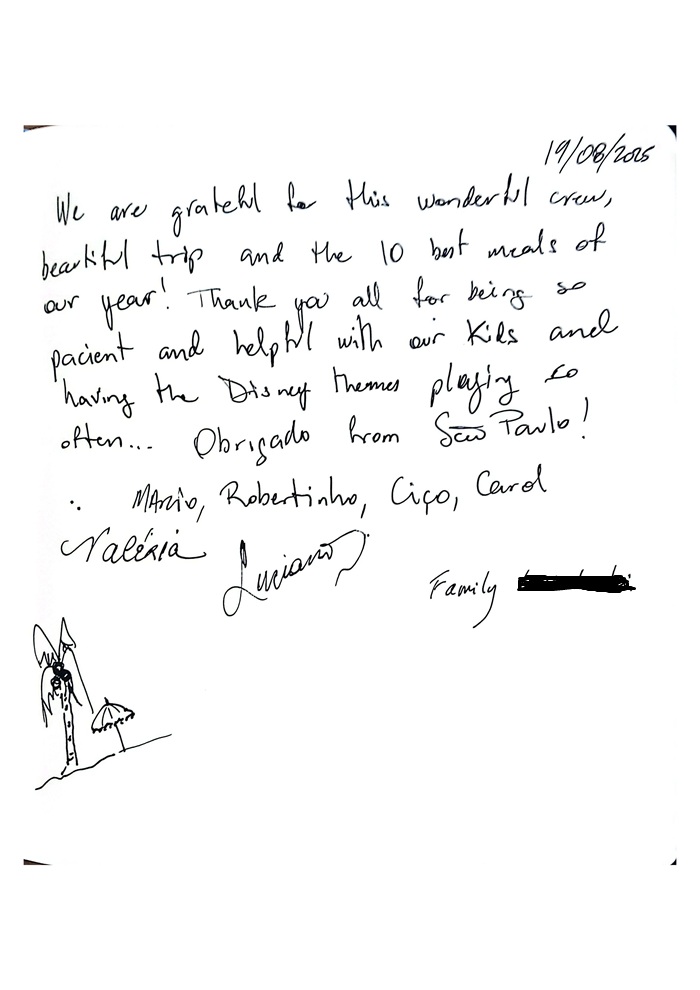 19/08/2025
We are grateful for this wonderful crew,
beautiful trip and the 10 best meals of
our year! Thank you all for being so
pacient and helpful with our Kids and
having the Disney themes playing so
often... Obrigado from São Paulo!
∴ Mario, Robertinho, Ciço, Carol
Valéria Luciano
Family